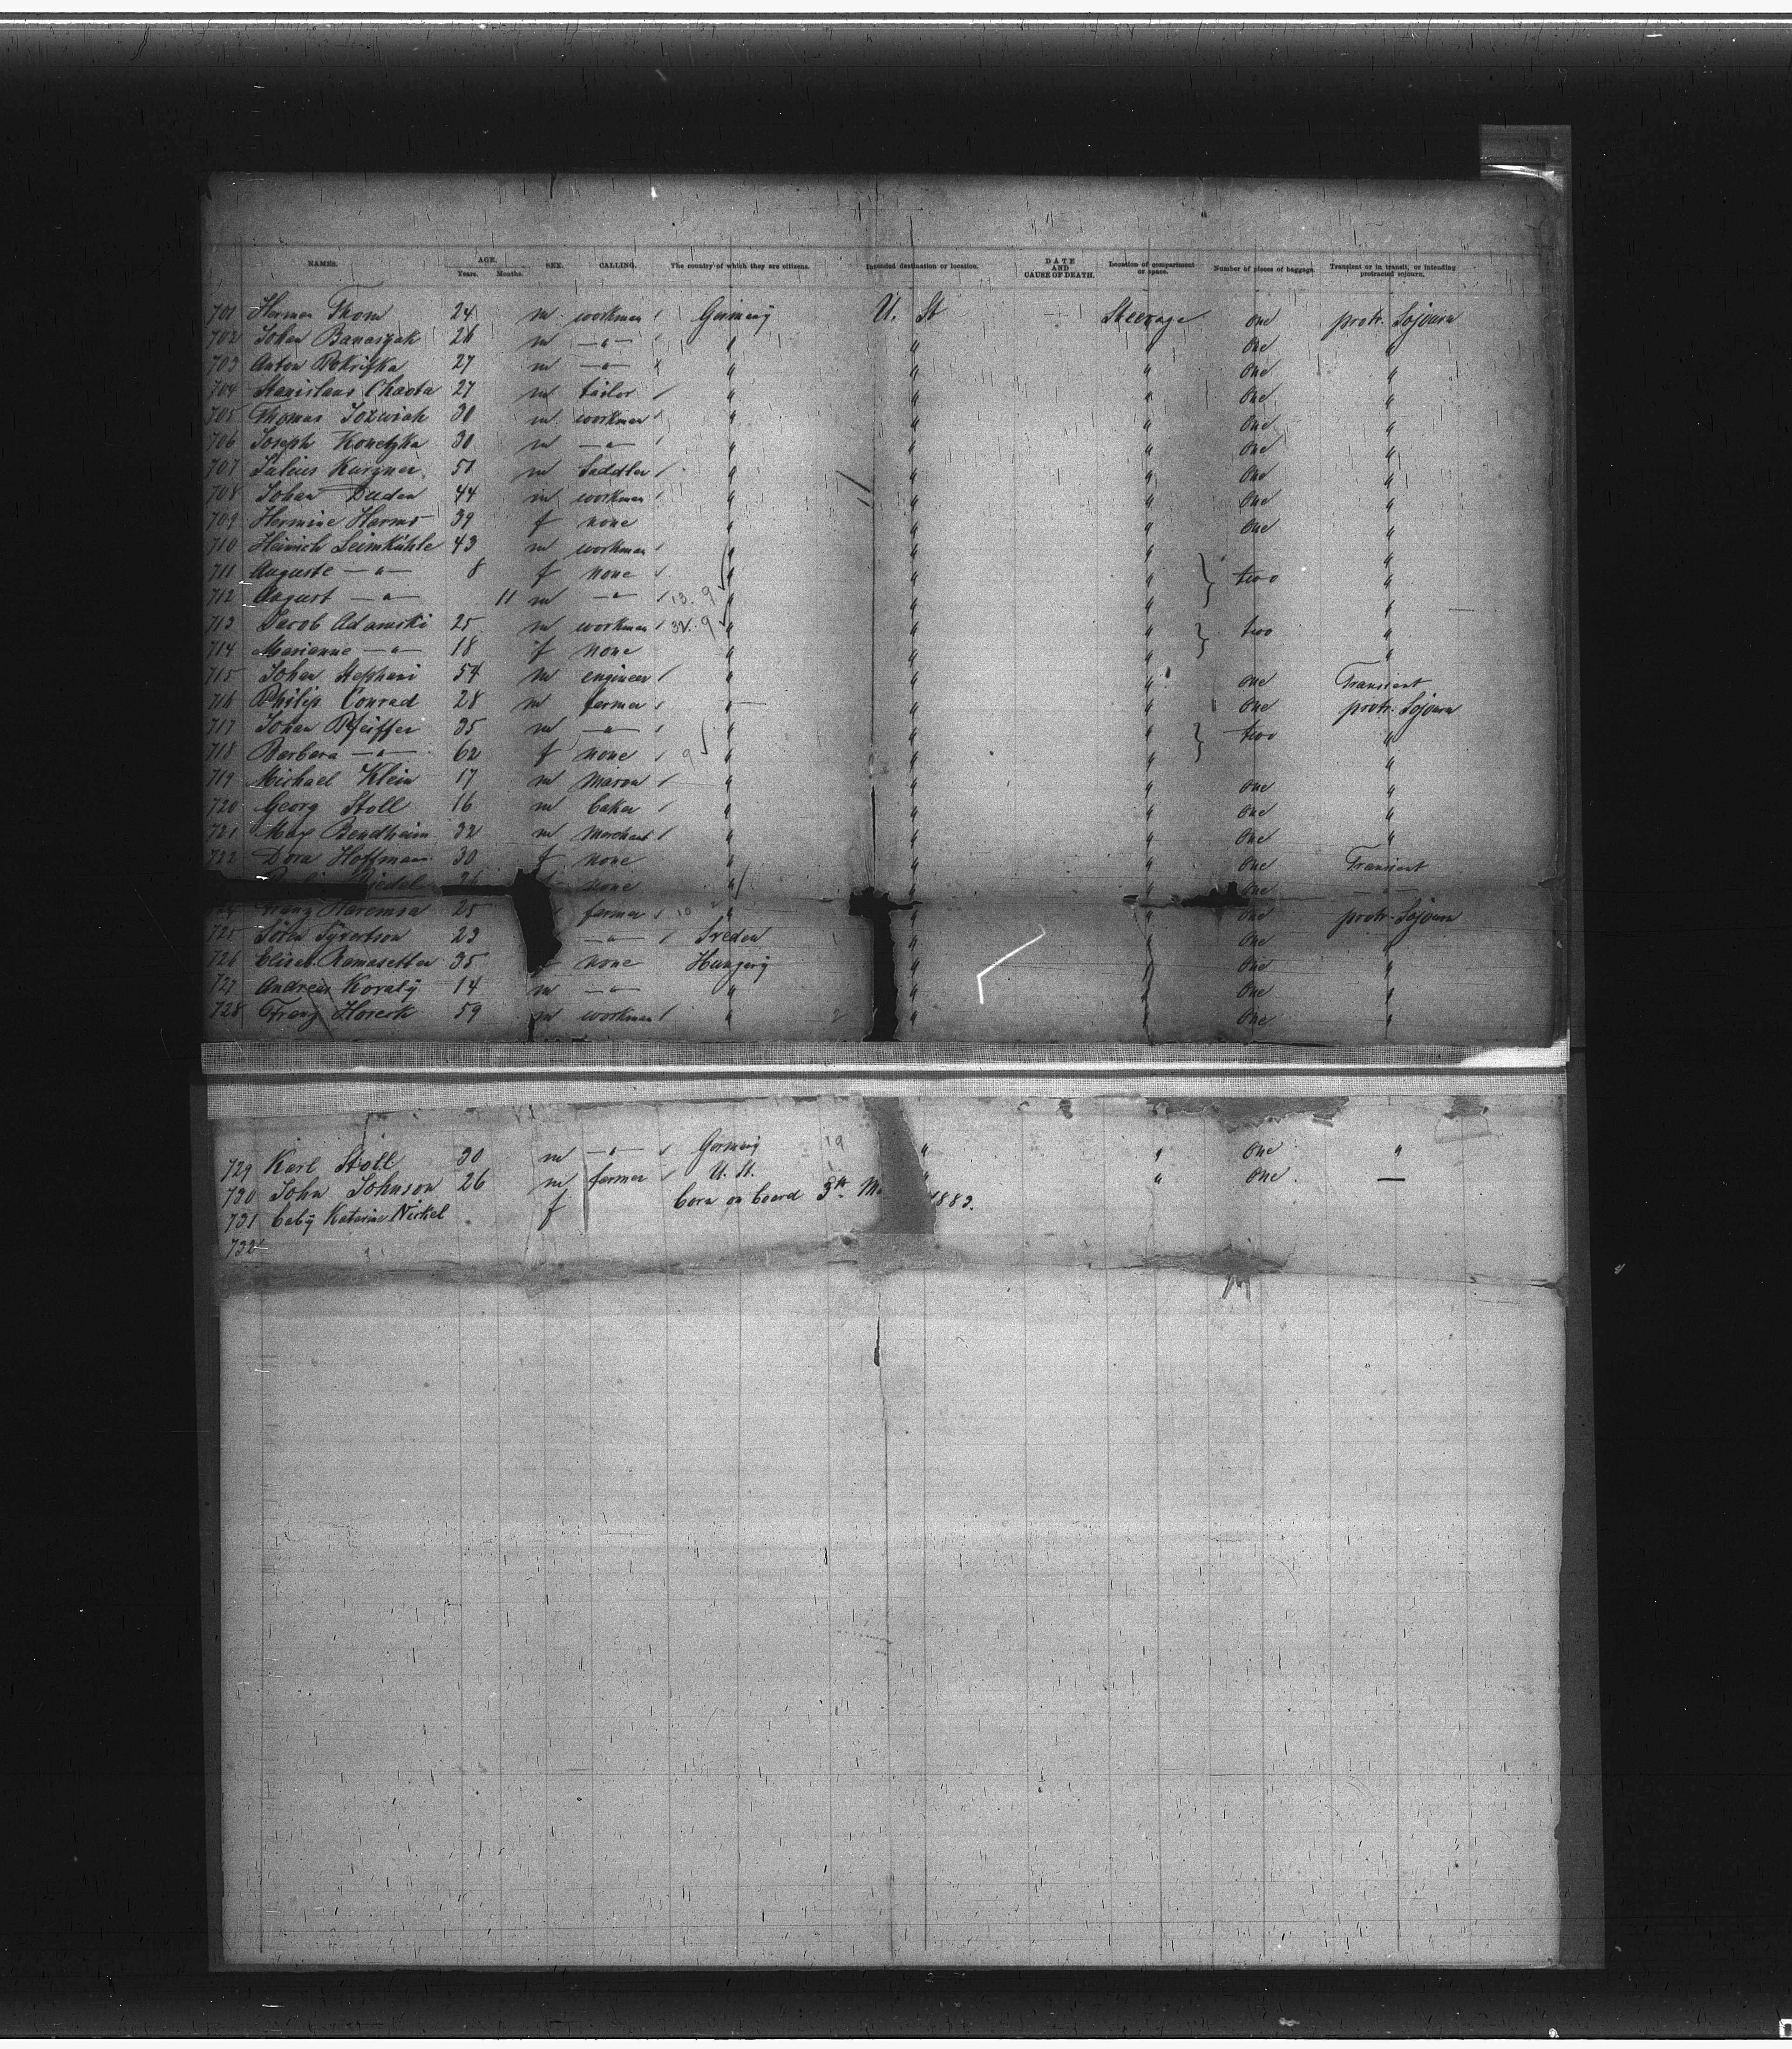 NAMES. AGE. Years. Months. SEX. CALLING. The country of which they are citizens. Intended destination or location. DATE AND CAUSE OF DEATH. Location of compartment or space. Number of pieces of baggage. Transient or in transit, or intending protracted sojourn.
701 Herman Thom 24 m workman Germany U. St Steerage One protr. Sojourn
702 Johan Banaszak 26 m —"— " " " One "
703 Anton 27 m —"— " " " One "
704 Stanislaus Chaota 27 m tailor " " " One "
705 Thomas Jozwiak 30 m workman " " " One "
706 Joseph Konetzka 30 m —"— " " " One "
707 Julius 51 m Saddler " " " One "
708 Johan Duden 44 m workman " " " One "
709 Hermine Harms 39 f none " " " One "
710 Heinrich Leimkühle 43 m workman " " " "
711 Auguste —"— 8 f none " " " two "
712 August —"— 11 m —"— 13. 9 " " " "
713 Jacob Adamski 25 m workman 9 " " " two "
714 Marianne —"— 18 f none " " " "
715 Johan Stephani 54 m engineer " " " One Transient
716 Philip Conrad 28 m farmer " " " One protr. Sojourn
717 Johan Pfeiffer 35 m —"— " " " two "
718 Barbara —"— 62 f none 9 " " " "
719 Michael Klein 17 m Mason " " " One "
720 Georg Stoll 16 m baker " " " One "
721 Max Bendheim 32 m Merchant " " " One "
722 Dora Hoffman 30 f none " " " One Transient
Riedel 26 none " " " One —"—
Franz 25 farmer 10 " " " One protr. Sojourn
725 Sören Syvertson 23 —"— Sveden " " One "
726 Elisab. Ramasetter 35 none Hungary " " One "
727 Andreas Koraly 14 m —"— " " " One "
728 Franz Horeck 59 m workman " 2 " " One "
729 Karl Stoll 30 m —"— Germany 19 " " One "
730 John Johnson 26 m farmer U. St. " " One —
731 baby Katarina Nickel f born on board 3th 1883.
732